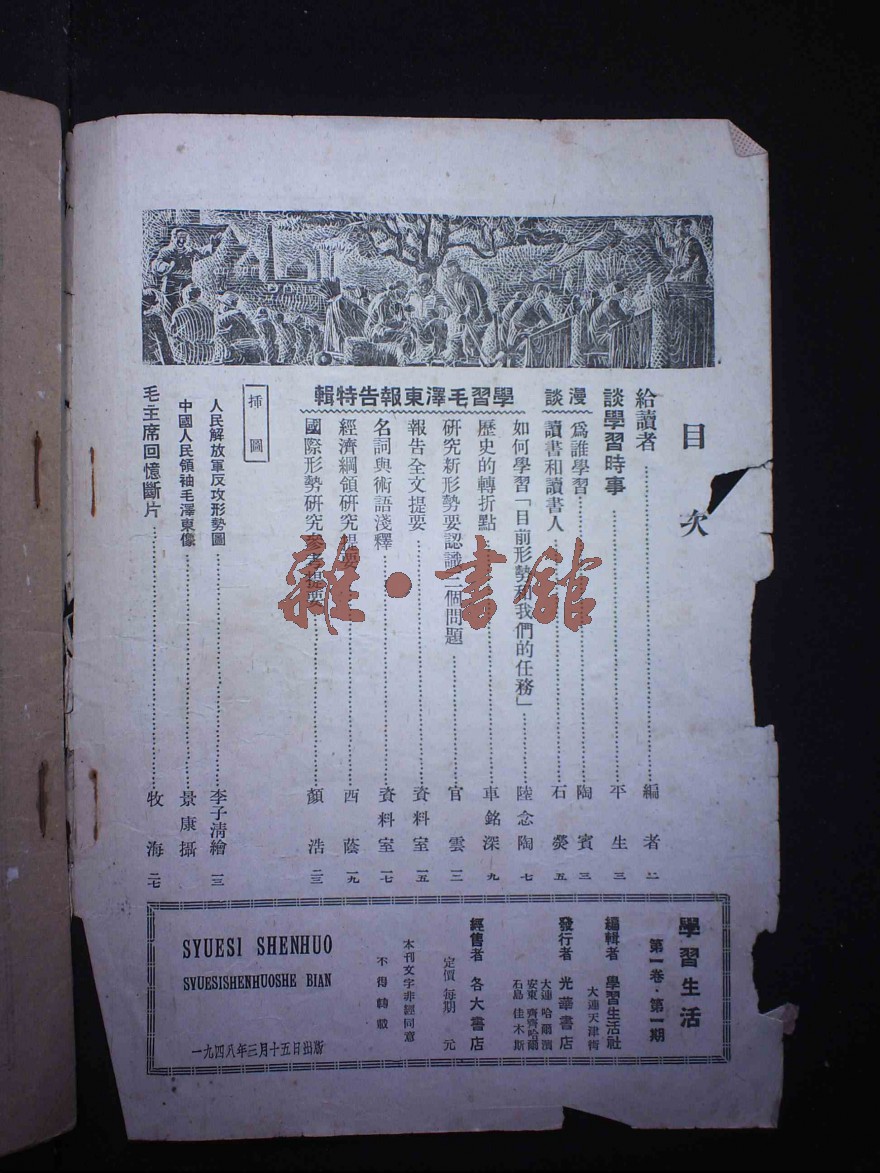 目次
給讀者……編者 二
談學習時事……平生 三
漫談
爲誰學習……陶賓 三
讀書和讀書人……石熒 五
學習毛澤東報告特輯
如何學習「目前形勢和我們的任務」……陸念陶 七
歷史的轉折點……車銘深 九
研究新形勢要認識二個問題……官雲 一二
報告全文提要……資料室 一五
名詞與術語淺釋……資料室 一七
經濟綱領研究提要……西蔭 一九
國際形勢研究參考提要……顏浩 二三
插圖
人民解放軍反攻形勢圖……李子清繪 一三
中國人民領袖毛澤東像……景康攝
毛主席回憶斷片……牧海 二七
學習生活
第一卷·第一期
編輯者 學習生活社
大連天津街
發行者 光華書店
大連 哈爾濱
安東 齊齊哈爾
石島 佳木斯
經售者 各大書店
定價每期 元
本刊文字非經同意
不得轉載
SYUESI SHENHUO
SYUESISHENHUOSHE BIAN
一九四八年三月十五日出版
雜·書館